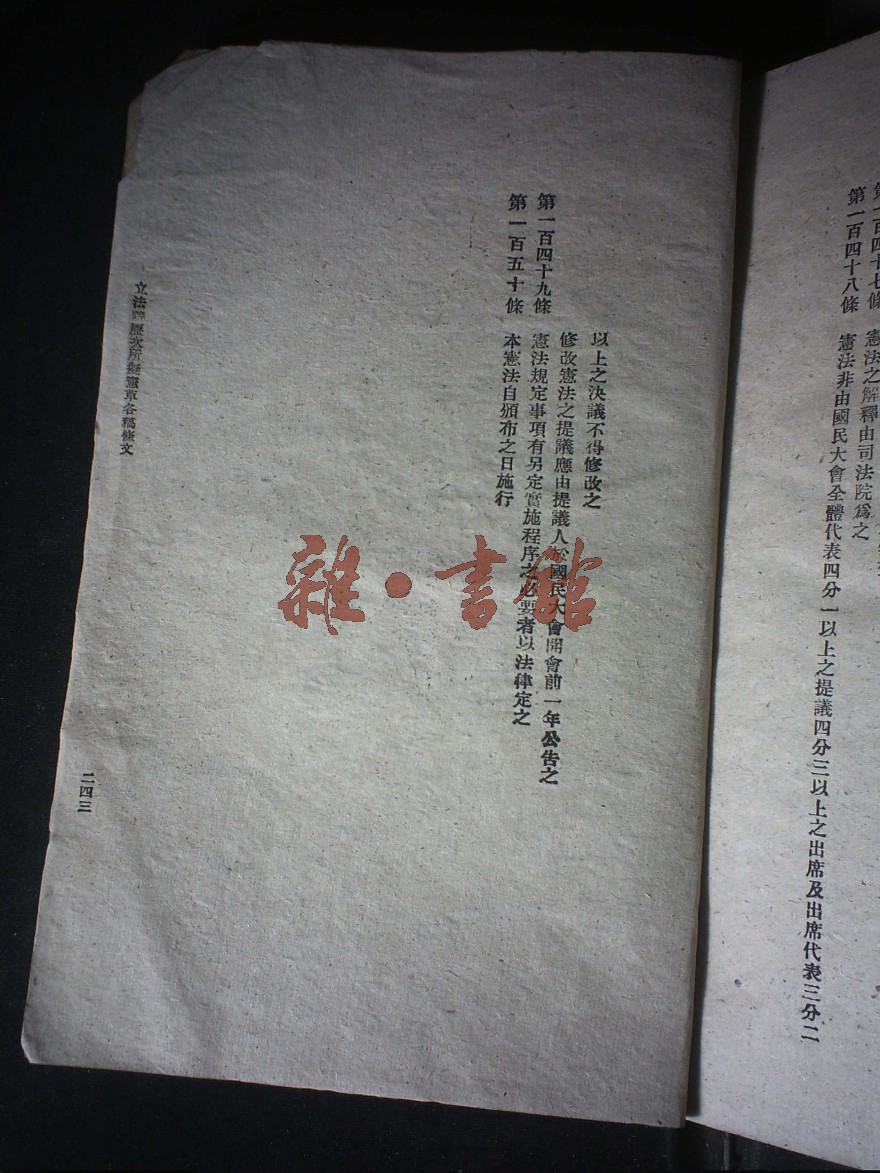 第一百四十七條　憲法之解釋由司法院爲之
第一百四十八條　憲法非由國民大會全體代表四分一以上之提議四分三以上之出席及出席代表三分二
以上之決議不得修改之
修改憲法之提議應由提議人於國民大會開會前一年公告之
第一百四十九條　憲法規定事項有另定實施程序之必要者以法律定之
第一百五十條　本憲法自頒布之日施行
立法院歷次所擬憲草各稿條文
二四三
雜·書館